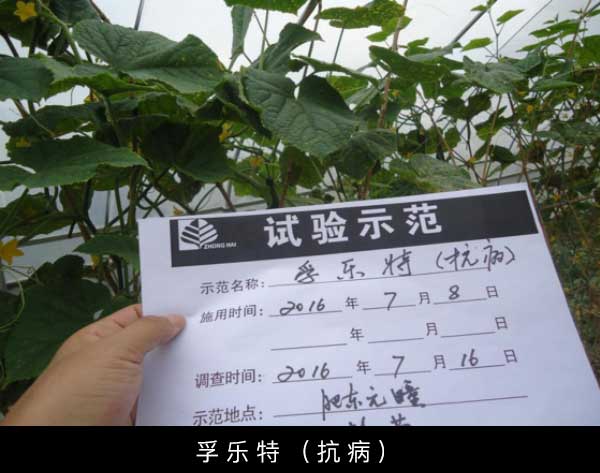 ZHONG HAI
试验示范
示范名称: 孚乐特(抗病)
施用时间: 2016 年 7 月 8 日
年 月 日
调查时间: 2016 年 7 月 16 日
示范地点: 肥东元疃
孚乐特（抗病）